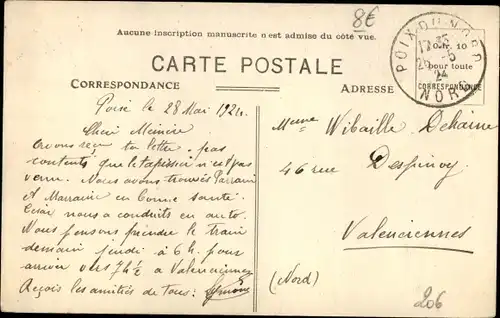 8€
Aucune inscription manuscrite n'est admise du côté vue.
CARTE POSTALE
CORRESPONDANCE
ADRESSE
POIX DU NORD
NORD
0 fr. 10
pour toute
CORRESPONDANCE
Poix le 28 Mai 1924.
Chère Mémère
Avons reçu ta lettre, pas
contents que le tapissier n'est pas
venu. Nous avons trouvés Parrain
et Marraine en bonne santé.
nous a conduits en auto.
Nous pensons prendre le train
demain jeudi à 6 h. pour
arriver vers 7h ½ à Valenciennes
Reçois les amitiés de tous.
Mme Wibaille Dehaine
46 rue Despinoy
Valenciennes
(Nord)
206